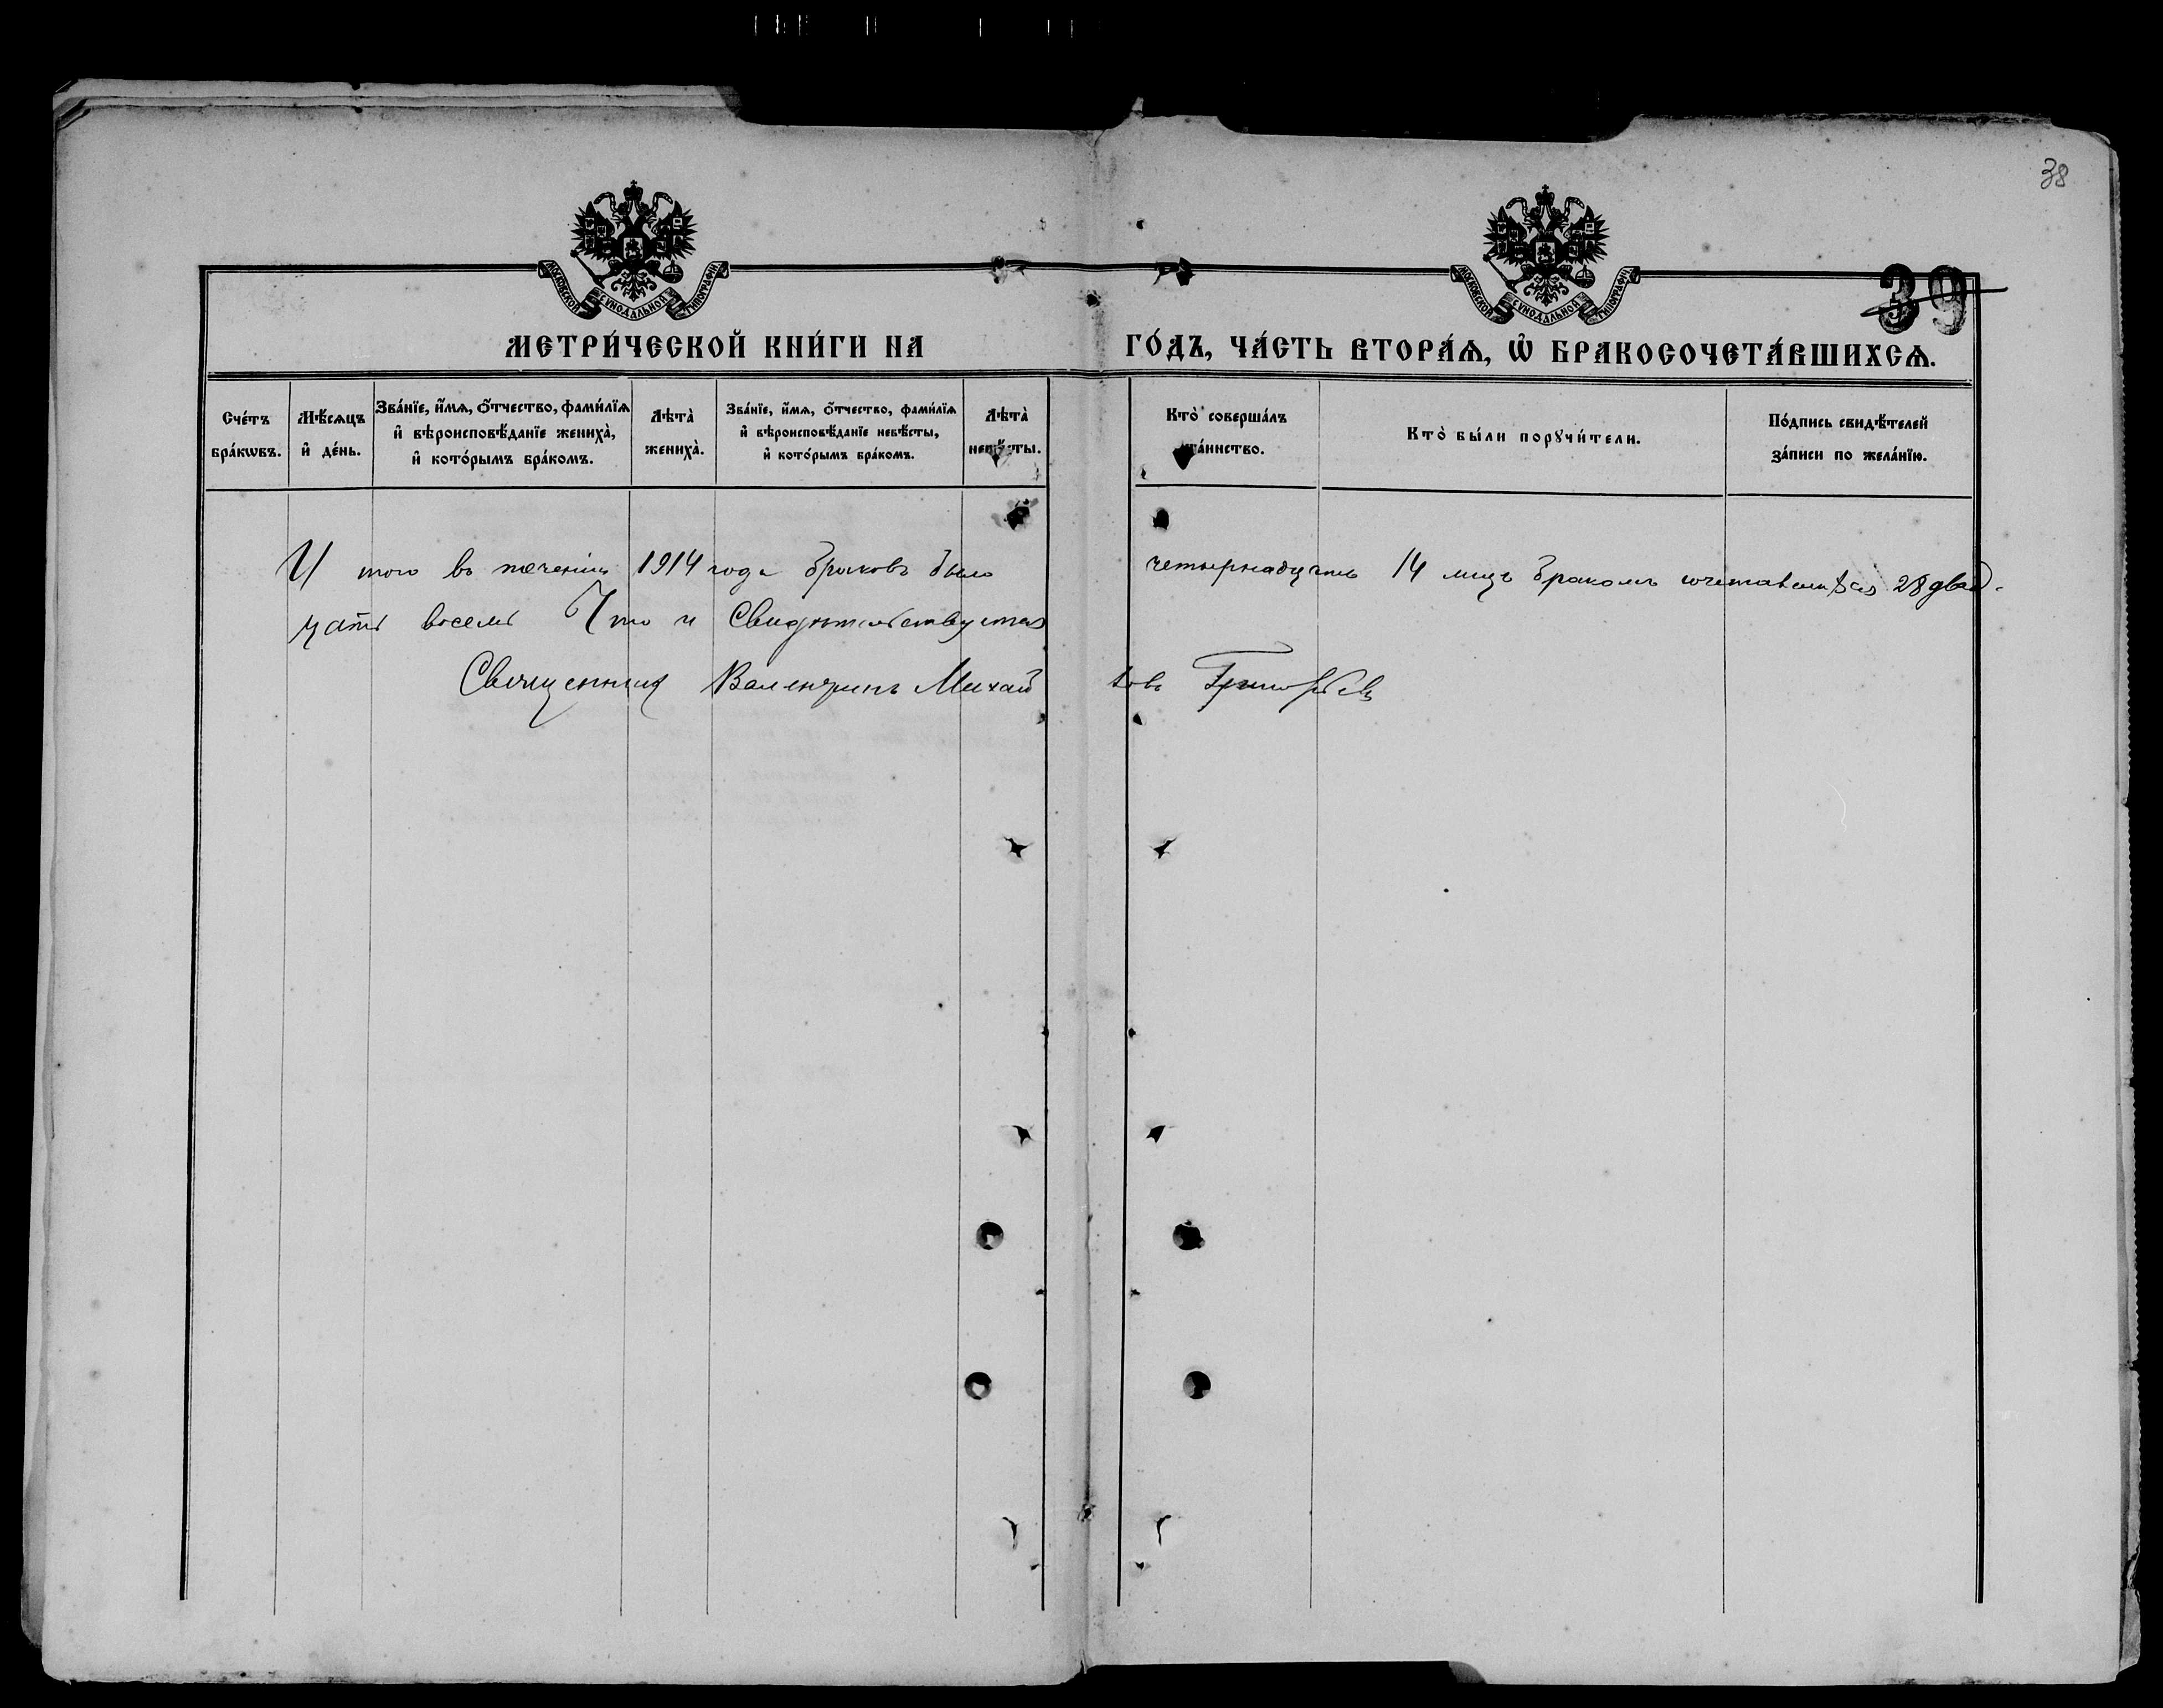 38
39
МОСКОВСКОЙ СѴНОДАЛЬНОЙ ТИПОГРАФІИ
МОСКОВСКОЙ СѴНОДАЛЬНОЙ ТИПОГРАФІИ
МЕТРИ́ЧЕСКОЙ КНИ́ГИ НА ГО́ДЪ, ЧА́СТЬ ВТОРА́Ѧ, Ѡ҆ БРАКОСОЧЕТА́ВШИХСѦ.
Сче́тъ бра́кѡвъ.
Мѣ́сѧцъ и҆ де́нь.
Зва́нїе, и҆́мѧ, ѻ҆́тчество, фами́лїѧ и҆ вѣроисповѣ́данїе жениха̀, и҆ кото́рымъ бра́комъ.
Лѣта̀ жениха̀.
Зва́нїе, и҆́мѧ, ѻ҆́тчество, фами́лїѧ и҆ вѣроисповѣ́данїе невѣ́сты, и҆ кото́рымъ бра́комъ.
Лѣта̀ невѣ́сты.
Кто̀ соверша́лъ та́инство.
Кто̀ бы́ли порꙋчи́тели.
По́дпись свидѣ́телей за́писи по жела́нїю.
И того въ теченіи 1914 года браковъ было четырнадцать 14 лицъ бракомъ сочетавшихся 28 двад-
цать восемь Что и Свидѣтельствуетъ
Священникъ Валентинъ Михай ловъ